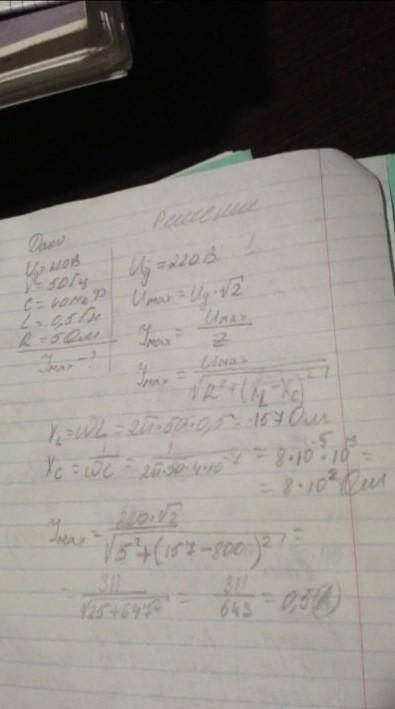 Решение
Дано:
Uд = 220В
ν = 50 Гц
L = 0,5 Гн
R = 5 Ом
Imax - ?
Uд = 220 В
Umax = Uд · √2
Imax = Umax / Z
Imax = Umax / √(R² + (XL - Xc)²)
XL = ωL = 2π · 50 · 0,5 = 157 Ом
Xc = 1 / ωC = 1 / 2π·50·4·10⁻⁷ = 8 · 10⁻⁵ · 10⁻³ =
= 8 · 10² Ом
Imax = 220·√2 / √(5² + (157 - 800)²) =
= 311 / √(25 + 647²) = 311 / 643 = 0,5 (А)